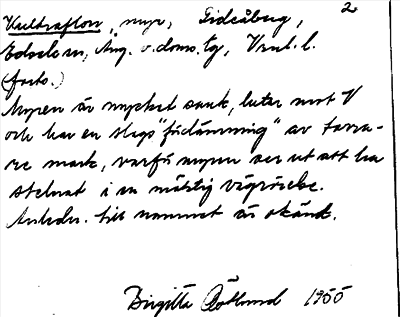 2
Kultraflon, myr, Lidcåberg,
Edsele sn, Ång. v. doms. tg, Vnl. l.
(forts.)
Myren är mycket sank, lutar mot V
och har en slags "fördämning" av torra-
re mark, varför myren ser ut att ha
stelnat i en mäktig vågrörelse.
Anledn. till namnet är okänd.
Birgitta 1955